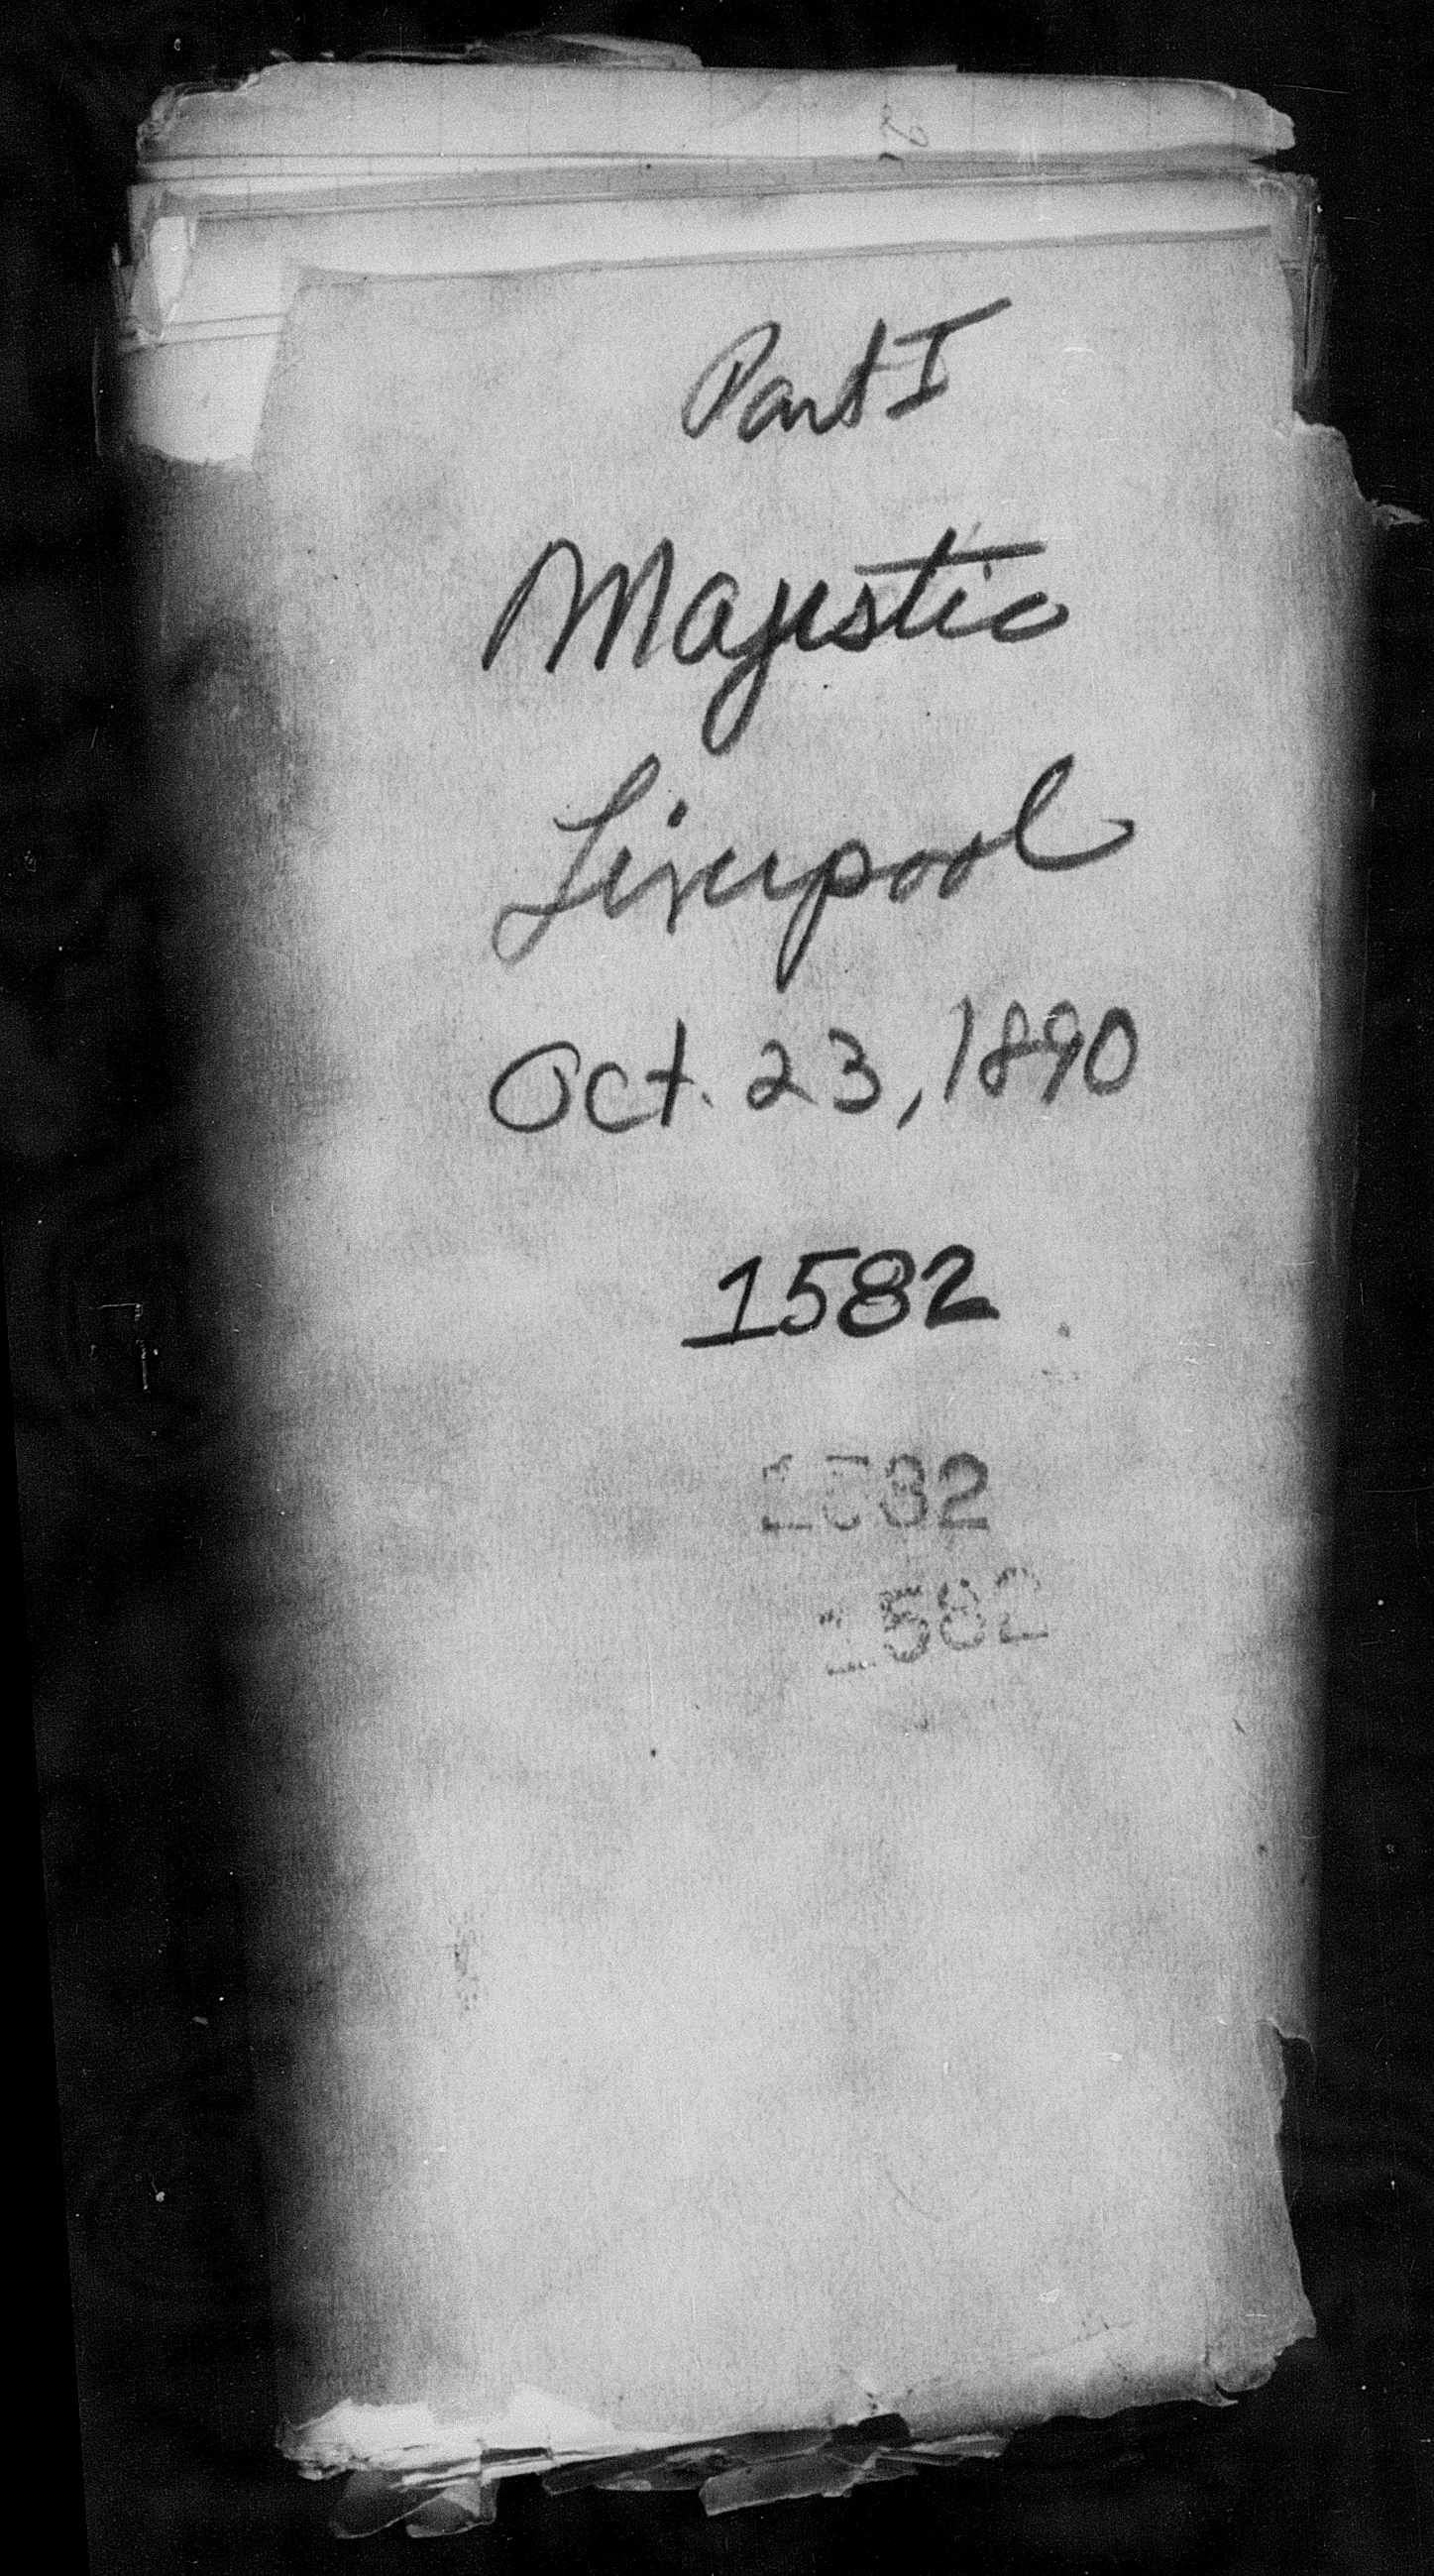 Part I
Majestic
Liverpool
Oct. 23, 1890
1582
1582
1582